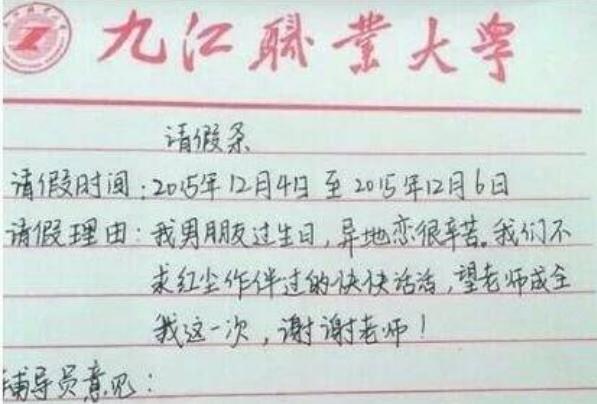 九江職業大学
请假条
请假时间:2015年12月4日至2015年12月6日
请假理由:我男朋友过生日,异地恋很辛苦。我们不
求红尘作伴过的快快活活,望老师成全
我这一次,谢谢老师!
辅导员意见: